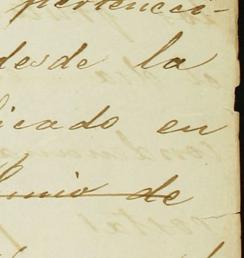 perteneci-
desde la
licado en
Junio de